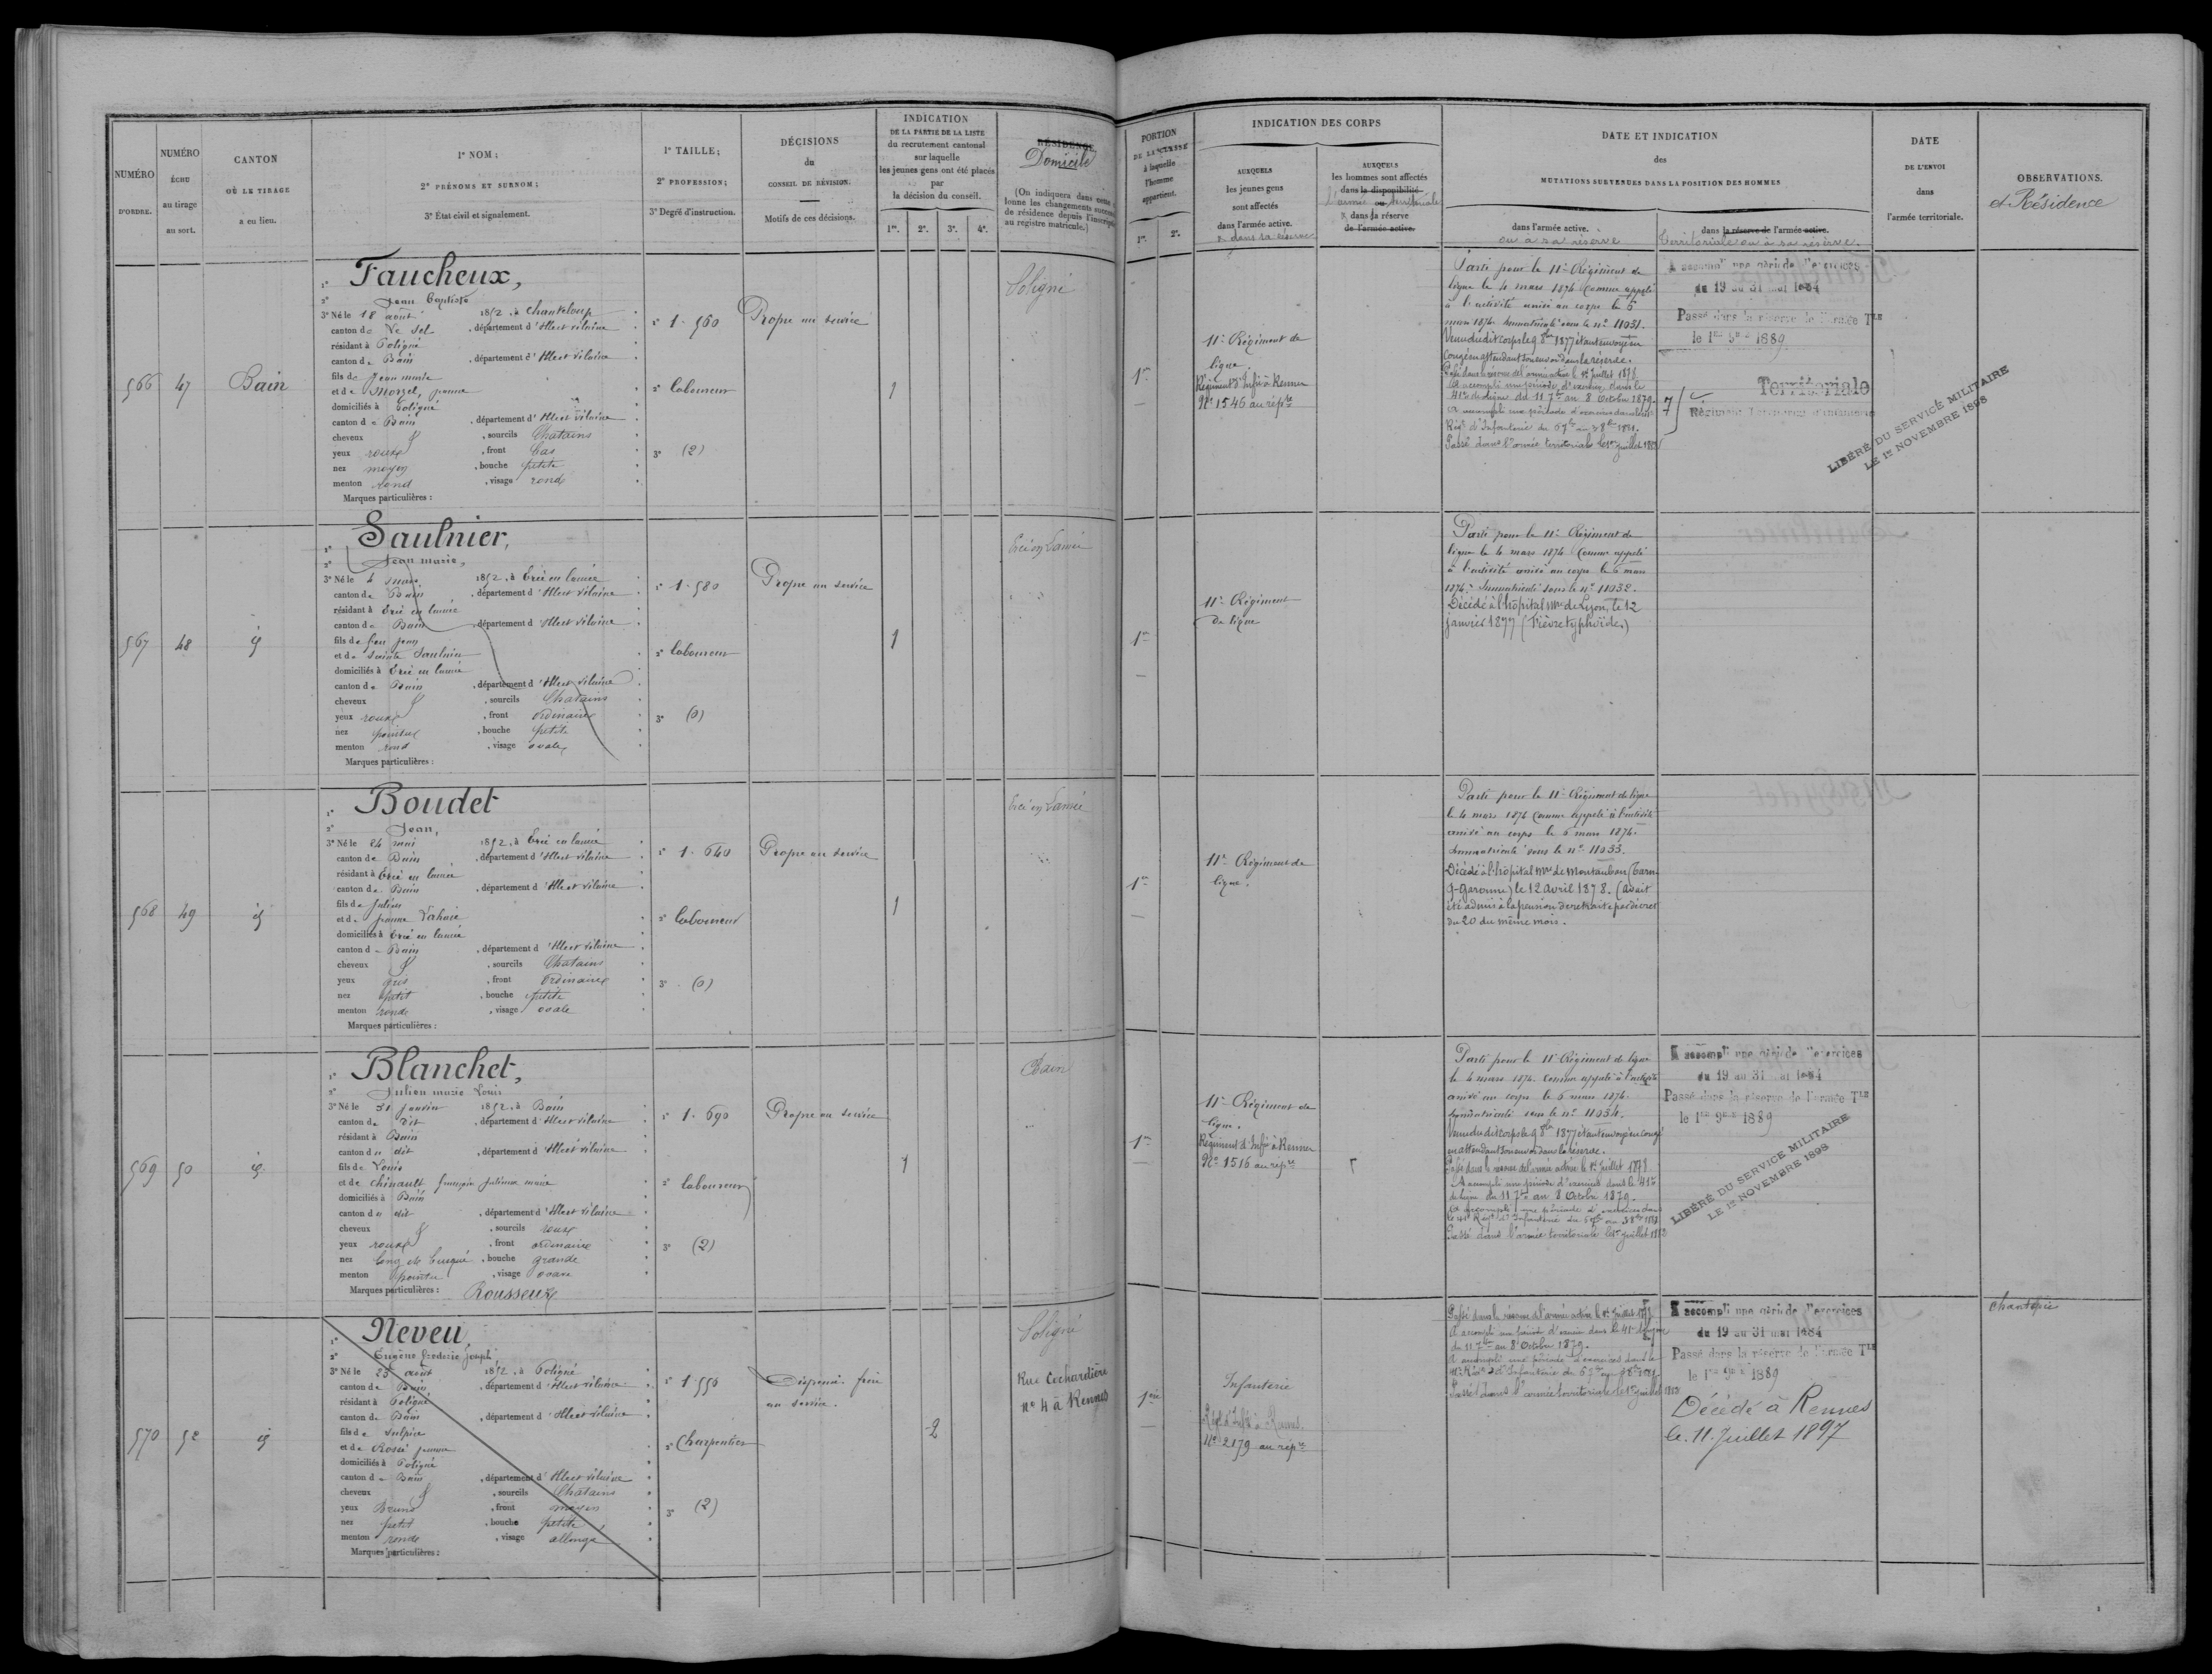 NUMÉRO
D'ORDRE.
NUMÉRO
ÉCHU
au tirage
au sort.
CANTON
OÙ LE TIRAGE
a eu lieu.
1º NOM;
2º PRÉNOMS ET SURNOM;
3º État civil et signalement.
1º TAILLE;
2º PROFESSION;
3º Degré d'instruction.
DÉCISIONS
du
CONSEIL DE RÉVISION;
Motifs de ces décisions.
INDICATION
DE LA PARTIE DE LA LISTE
du recrutement cantonal
sur laquelle
les jeunes gens ont été placés
par
la décision du conseil.
1re. 2e. 3e. 4e.
RÉSIDENCE
Domicile
(On indiquera dans cette
lonne les changements
de résidence depuis
au registre matricule.)
PORTION
DE LA CLASSE
à laquelle
l'homme
appartient.
1re. 2e.
INDICATION DES CORPS
AUXQUELS
les jeunes gens
sont affectés
dans l'armée active.
& dans sa réserve
AUXQUELS
les hommes sont affectés
dans la disponibilité
l'armée ou territoriale
& dans la réserve
de l'armée active.
DATE ET INDICATION
des
MUTATIONS SURVENUES DANS LA POSITION DES HOMMES
dans l'armée active.
ou à sa réserve
dans la réserve de l'armée active.
Territoriale ou à sa réserve.
DATE
DE L'ENVOI
dans
l'armée territoriale.
OBSERVATIONS.
et Résidence
566 47 Bain
1º Faucheux,
2º Jean Baptiste
3º Né le 18 août 1852, à Chanteloup
canton de Le Sel, département d'Ille et Vilaine
résidant à Poligné
canton de Bain, département d'Ille et Vilaine
fils de Jean Marie
et de Morzel, Jeanne
domiciliés à Poligné
canton de Bain, département d'Ille et Vilaine
cheveux &, sourcils Chatains
yeux roux, front bas
nez moyen, bouche petite
menton rond, visage rond
Marques particulières :
1º 1.560
2º laboureur
3º (2)
Propre au service
1
Poligné
1re
11e Régiment de
ligne.
Régiment d'Infie à Rennes
No 1546 au répre
Parti pour le 11e Régiment de
ligne le 4 mars 1874 Comme appelé
à l'activité arrivé au corps le 6
mars 1874. Immatriculé sous le no 11031.
Venu dudit corps le 9 8bre 1877 étant envoyé en
Congé en attendant son envoi dans la réserve.
Passé dans la réserve de l'armée active le 1er Juillet 1878.
A accompli une période d'exercices dans le
41e de ligne du 11 7bre au 8 Octobre 1879.
A accompli une période d'exercices dans le
Régt d'Infanterie du 6 7bre au 3 8bre 1881.
Passé dans l'armée territoriale le 1er Juillet 1883
A accompli une période d'exercices
du 19 au 31 mai 1884
Passé dans la réserve de l'armée Tle
le 1er 9bre 1889
Territoriale
Régiment Territorial d'Infanterie
LIBÉRÉ DU SERVICE MILITAIRE
LE 1er NOVEMBRE 1898
567 48 id
1º Saulnier,
2º Jean Marie,
3º Né le 4 mars 1852, à Ercé en Lamée
canton de Bain, département d'Ille et Vilaine
résidant à Ercé en Lamée
canton de Bain, département d'Ille et Vilaine
fils de feu Jean
et de Sainte Saulnier
domiciliés à Ercé en Lamée
canton de Bain, département d'Ille et Vilaine
cheveux &, sourcils Chatains
yeux roux, front ordinaire
nez pointu, bouche petite
menton rond, visage ovale
Marques particulières :
1º 1.580
2º laboureur
3º (0)
Propre au service
1
Ercé en Lamée
1re
11e Régiment
de ligne
Parti pour le 11e Régiment de
ligne le 4 mars 1874 Comme appelé
à l'activité arrivé au corps le 6 mars
1874. Immatriculé sous le no 11032.
Décédé à l'hôpital mre de Lyon, le 12
janvier 1877 (Fièvre typhoïde.)
568 49 id
1º Boudet
2º Jean,
3º Né le 24 mai 1852, à Ercé en Lamée
canton de Bain, département d'Ille et Vilaine
résidant à Ercé en Lamée
canton de Bain, département d'Ille et Vilaine
fils de Julien
et de Jeanne
domiciliés à Ercé en Lamée
canton de Bain, département d'Ille et Vilaine
cheveux &, sourcils Chatains
yeux gris, front ordinaire
nez petit, bouche petite
menton ronde, visage ovale
Marques particulières :
1º 1.640
2º laboureur
3º (0)
Propre au service
1
Ercé en Lamée
1re
11e Régiment de
ligne.
Parti pour le 11e Régiment de ligne
le 4 mars 1874 Comme appelé à l'activité
arrivé au corps le 6 mars 1874.
Immatriculé sous le no 11033.
Décédé à l'hôpital mre de Montauban (Tarn
& Garonne) le 12 avril 1878. (avait
été admis à la pension de retraite par décret
du 20 du même mois.
569 50 id
1º Blanchet,
2º Julien Marie Louis
3º Né le 31 janvier 1852, à Bain
canton de dit, département d'Ille et Vilaine
résidant à Bain
canton du dit, département d'Ille et Vilaine
fils de Louis
et de Chinault françoise Julienne Marie
domiciliés à Bain
canton du dit, département d'Ille et Vilaine
cheveux &, sourcils roux
yeux roux, front ordinaire
nez long et busqué, bouche grande
menton pointu, visage ovale
Marques particulières : Rousseur
1º 1.690
2º laboureur
3º (2)
Propre au service
1
Bain
1re
11e Régiment de
ligne.
Régiment d'Infie à Rennes
No 1516 au répre
Parti pour le 11e Régiment de ligne
le 4 mars 1874. Comme appelé à l'activité
arrivé au corps le 6 mars 1874.
Immatriculé sous le no 11034.
Venu dudit corps le 9 8bre 1877 étant envoyé en congé
en attendant son envoi dans la réserve.
Passé dans la réserve de l'armée active le 1er Juillet 1878
A accompli une période d'exercices dans le 41me
de ligne du 11 7bre au 8 Octobre 1879.
A accompli une période d'exercices dans
le 41e Régt d'Infanterie du 6 7bre au 3 8bre 1881
Passé dans l'armée territoriale le 1er Juillet 1883
A accompli une période d'exercices
du 19 au 31 mai 1884
Passé dans la réserve de l'armée Tle
le 1er 9bre 1889
LIBÉRÉ DU SERVICE MILITAIRE
LE 1er NOVEMBRE 1898
570 52 id
1º Neveu,
2º Eugène frederic Joseph
3º Né le 25 août 1852, à Poligné
canton de Bain, département d'Ille et Vilaine
résidant à Poligné
canton de Bain, département d'Ille et Vilaine
fils de Sulpice
et de Rossé Jeanne
domiciliés à Poligné
canton de Bain, département d'Ille et Vilaine
cheveux &, sourcils Chatains
yeux Bruns, front moyen
nez petit, bouche petite
menton ronde, visage allongé
Marques particulières :
1º 1.550
2º Charpentier
3º (2)
Dispensé. frère
au service.
2
Poligné
Rue Cochardière
no 4 à Rennes
1ère
Infanterie
Régt d'Infie à Rennes.
No 2179 au répre
Passé dans la réserve de l'armée active le 1er Juillet 1878
A accompli une période d'exercices dans le 41e de ligne
du 11 7bre au 8 Octobre 1879.
A accompli une période d'exercices dans le
41e Régt d'Infanterie du 6 7bre au 3 8bre 1881
Passé dans l'armée territoriale le 1er Juillet 1883
A accompli une période d'exercices
du 19 au 31 mai 1884
Passé dans la réserve de l'armée Tle
le 1er 9bre 1889
Décédé à Rennes
le 11 Juillet 1897
Chantepie